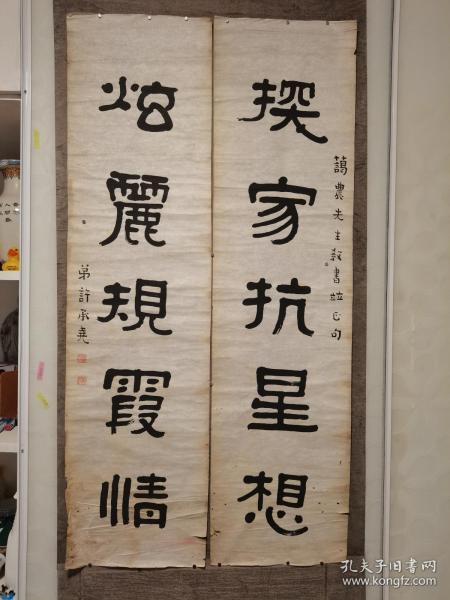 探家抗星想
藹農先生敎書竝正句
炫麗規霞情
弟許承堯
孔夫子旧书网
www.kongfz.com